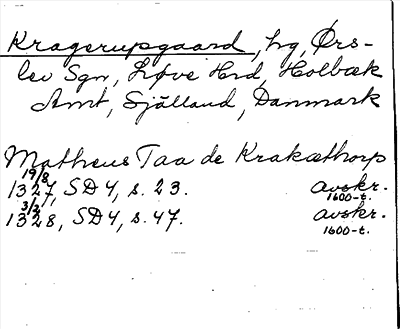 Kragerupgaard, hg, Ørs-
lev Sgn, Løve Hrd, Holbæk
Amt, Sjålland, Danmark
Matheus Taa de Krakæthorp
19/8
1327, SD4, s. 23. avskr.
1600-t.
3/2
1328, SD4, s. 47. avskr.
1600-t.